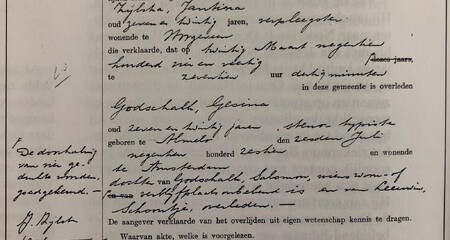 Zylstra, Jantina
oud zeven en twintig jaren, verpleegster
wonende te
die verklaarde, dat op twintig Maart negentien
honderd vier en veertig dezes jaars,
te zeventien uur dertig minuten
in deze gemeente is overleden
Godschalk, Gesina
oud zeven en twintig jaren, steno-typiste
geboren te Almelo den zesden Juli
negentien honderd zestien en wonende
te Amsterdam
dochter van Godschalk, Salomon, wiens woon- of
en van verblijfplaats onbekend is en van Leeuwen,
Schoontje, overleden. —
De aangever verklaarde van het overlijden uit eigen wetenschap kennis te dragen.
Waarvan akte, welke is voorgelezen.
De doorhaling
van vier ge-
drukte woorden
goedgekeurd. —
J. Zylstra